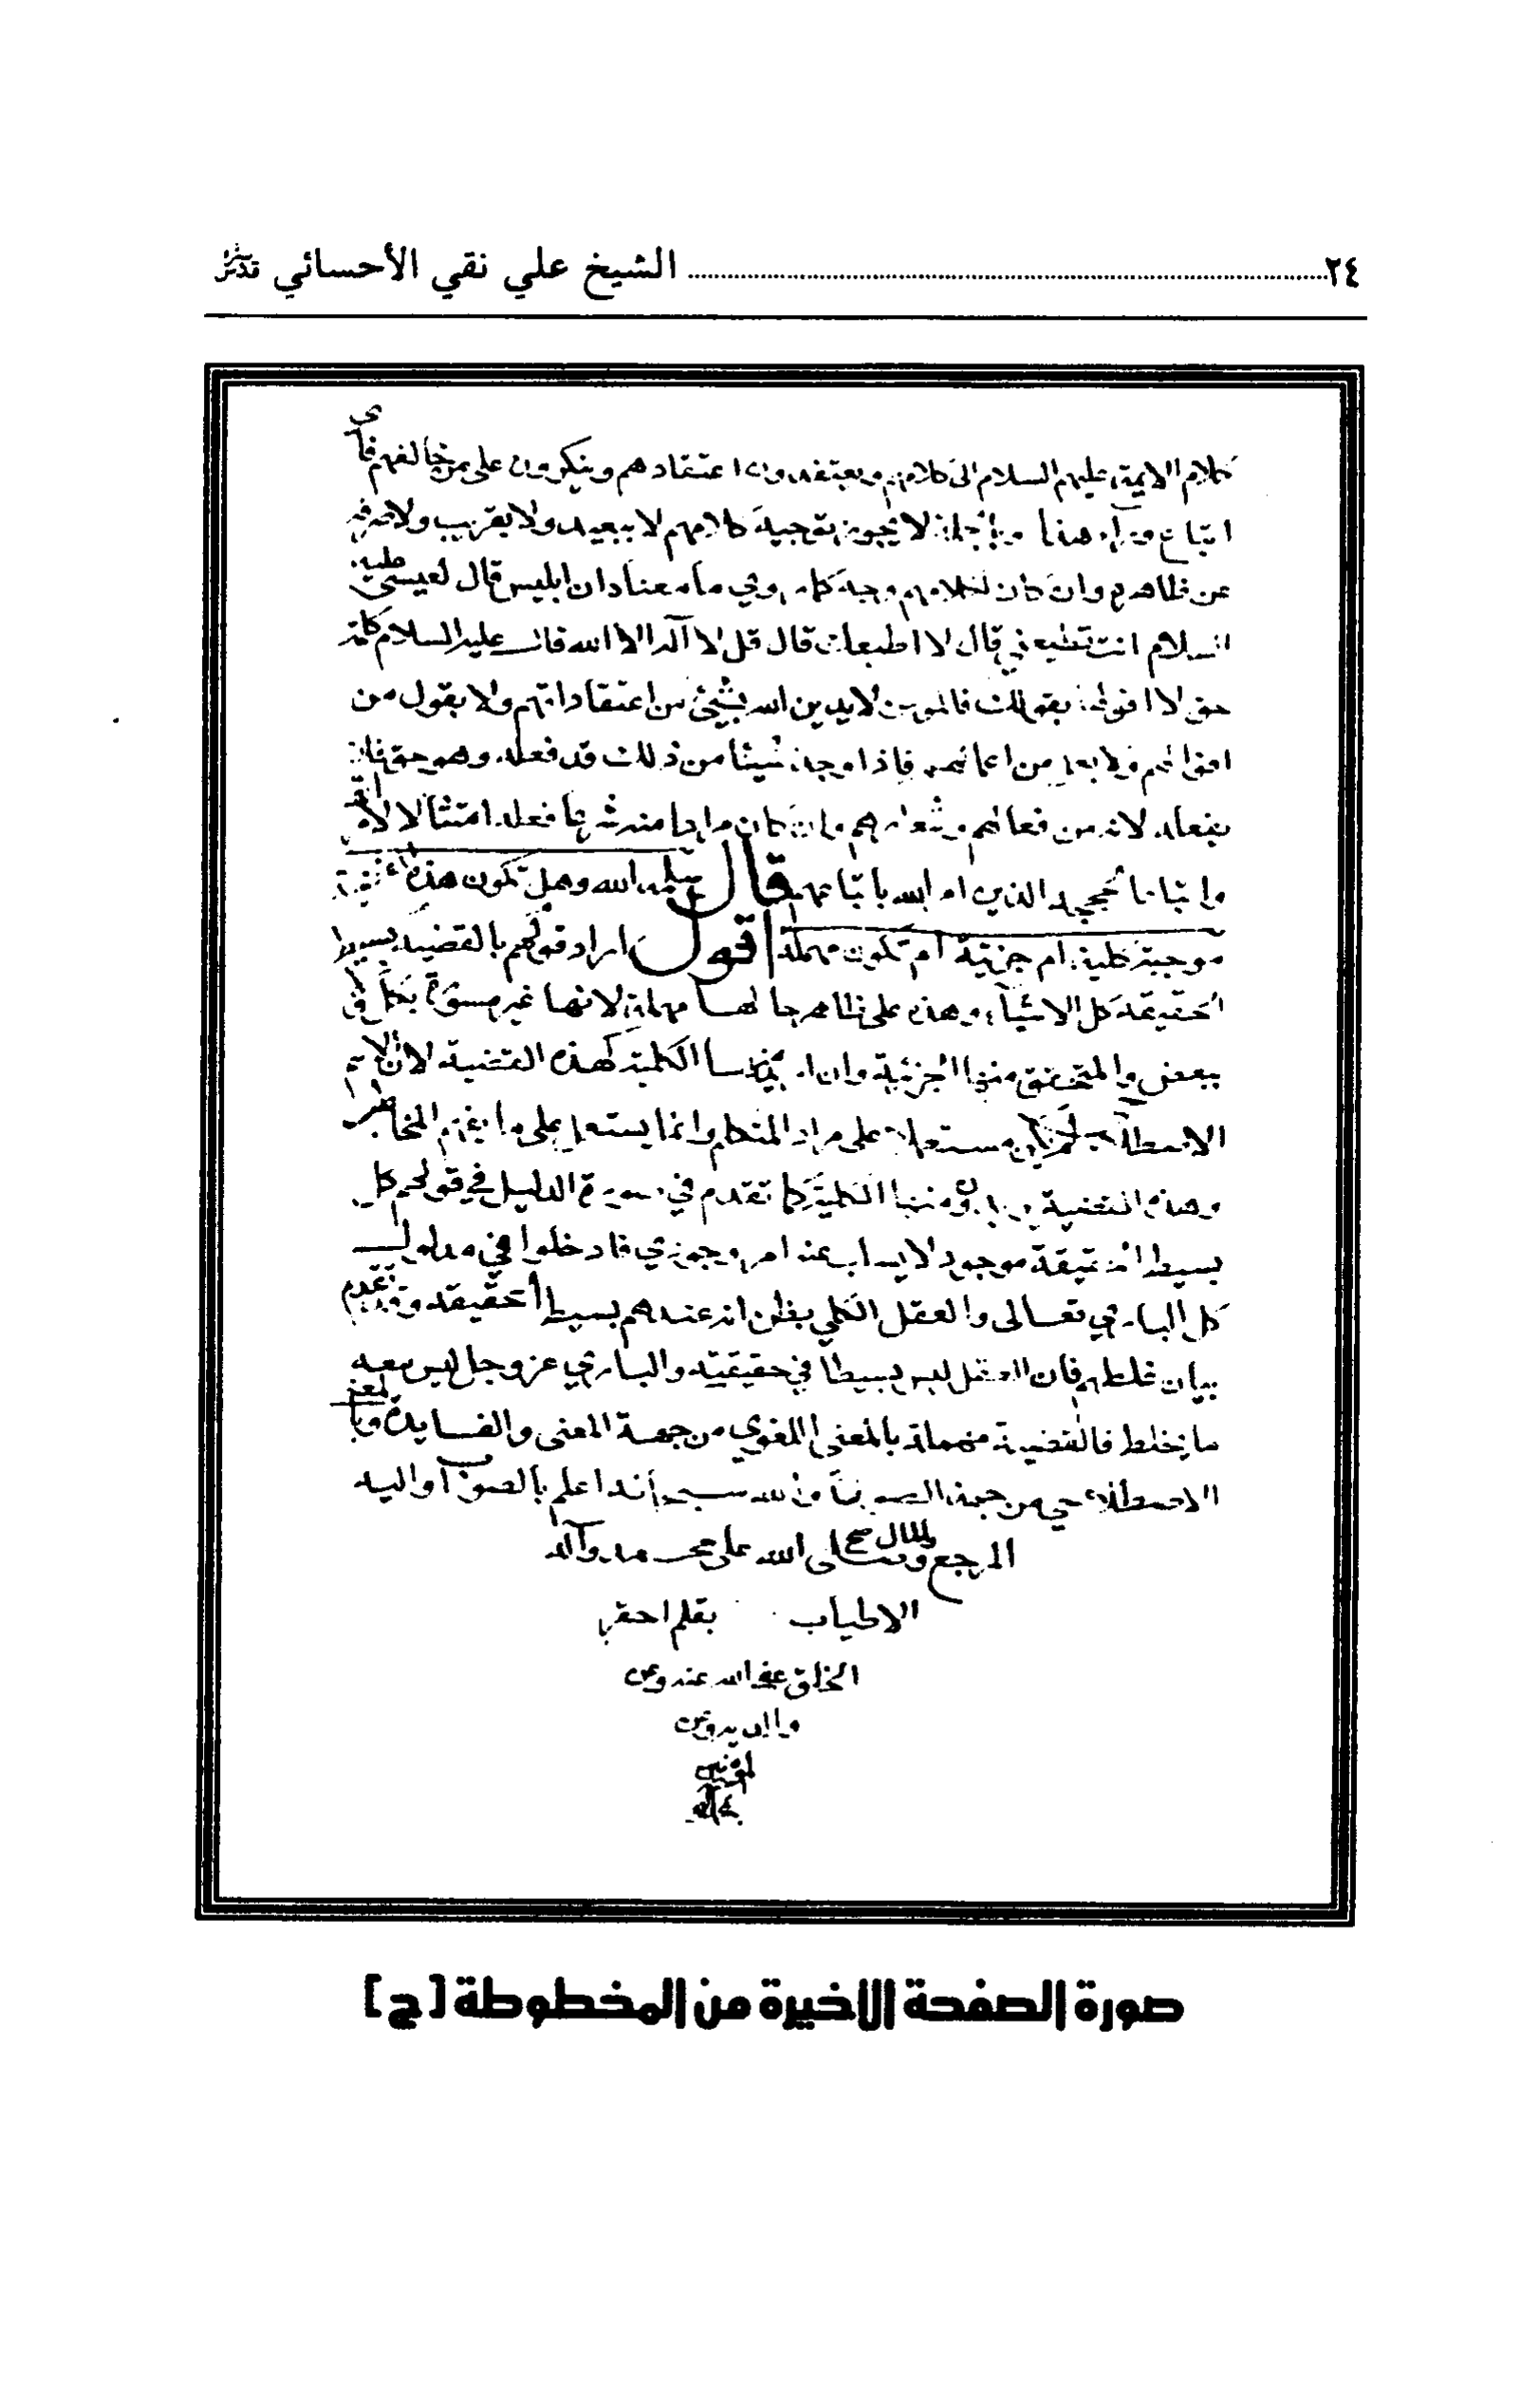 ٢٤ ........ الشيخ علي نقي الأحسائي قدس سره
كلام الايمة عليهم السلام الى كلامهم ويعتقدون اعتقادهم وينكرون على من خالفهم فأي
اتباع وراء هذا وبالجملة لا يجوز توجيه كلامهم لا ببعيد ولا بقريب ولا صرفه
عن ظاهره وان كان لكلامهم وجه كما روي ما معناه ان ابليس قال لعيسى عليه
السلام انت تطيعني قال لا اطيعك قال قل لا آله الا الله فقال عليه السلام كلمة
حق لا اقولها بقولك فالمومن لا يدين الله بشيئ من اعتقاداتهم ولا يقول من
اقوالهم ولا يعمل من اعمالهم فاذا وجد شيئا من ذلك قد فعلوه وهو حق فلا
يفعله لانه من فعالهم وشعارهم وان كان مرادا منه شرعا فعله امتثالا لامر الله
واتباعا لحججه الذين امر الله باتباعهم قال سلمه الله وهل تكون هذه القضية
موجبة كلية ام جزئية ام تكون مهملة اقول اراد قولهم بالقضية بسيط
الحقيقة كل الاشياء وهذه على ظاهر حالها مهملة لانها غير مسورة بكل ولا
ببعض والمتحقق منها الجزئية وان اريد منها الكلية كهذه القضية لان
الاصطلاح لم يكن مستعملا على مراد المتكلم وانما يستعمل على ما يفهم المخاطب
وهذه القضية منها الكلية كما تقدم في صورة الدليل في قولهم كل
بسيط الحقيقة موجود لا يسلب عنه امر وجودي فادخلوا في مدلول
كل الباري تعالى والعقل الكلي بظن انه عندهم بسيط الحقيقة وقد تقدم
بيان غلطهم فان العقل ليس بسيطا في حقيقته والباري عز وجل ليس معه
ما يخلط فالقضية مهملة بالمعنى اللغوي من جهة المعنى والفايدة وبالمعنى
الاصطلاحي من جهة الصورة والله سبحانه اعلم بالصواب واليه
المرجع والمآل وصلى الله على محمد وآله
الاطياب بقلم احقر
الخلق عفى الله عنه وعن
والديه وعن
المؤمنين
صورة الصفحة الاخيرة من المخطوطة [ج]